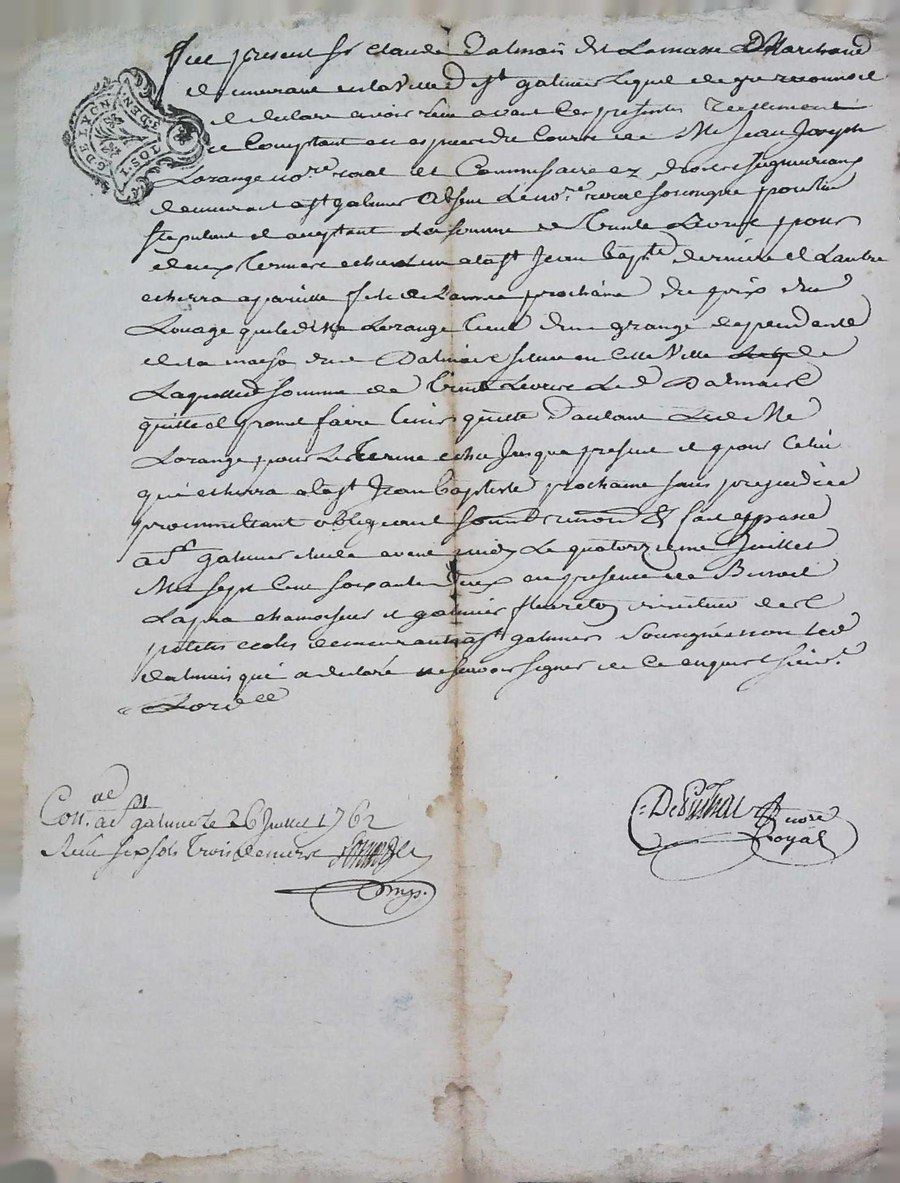 G. DE LYON
UN S. 1. D. EDEN
fut present Sr Claude Dalmais dit Lamarre Marchand
demeurant en la Ville de st galmier Lequel de gré reconnoit
et declare avoir Receu avant Ces presentes reellement
Comptant en especes du Cours de Me Jean Joseph
Lorange nore royal et Commissaire ez droits seigneuriaux
demeurant a st galmier nore royal soussigné pour luy
stipulant et acceptant La somme de trente Livres pour
deux termes echus Lun a la st Jean baptte derniere et Lautre
echerra a pareille fete de Lannée prochaine du prix du
Louage que led Me Lorange tient dune grange dependante
de la maison dud Dalmais située en cette Ville
Laquelle somme de trente Livres Led Dalmais
quitte et promet faire tenir quitte dautant Led Me
Lorange pour Le terme echu Jusqua present et pour Celui
qui echerra a la st Jean Baptiste prochaine sans prejudice
promettant obligeant soumettant renon & fait et passé
a st galmier etude avant midy Le quatorzieme Juillet
Mil sept Cent soixante deux en presence de Benoit
Lapra chamoiseur et galmier fleuret recteur de
petites ecoles demeurants a st galmier Soussignés non led
dalmais qui a declaré ne scavoir signer de Ce enquis et
Con. a st galmier le 26 Juillet 1762
Receu six sols trois deniers
nore
Royal